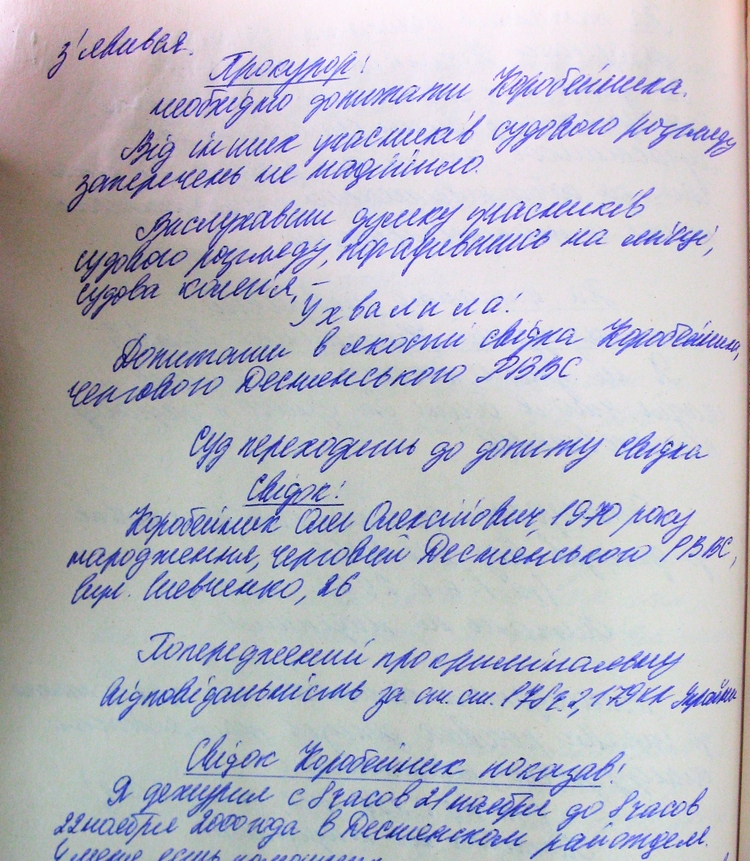 з'явився.
Прокурор:
необхідно допитати Коробейника.
Від інших учасників судового розгляду
заперечень не надійшло.
Вислухавши думку учасників
судового розгляду, порадившись на місці,
судова колегія, –
Ухвалила:
Допитати в якості свідка Коробейник,
чергового Деснянського РВВС
Суд переходить до допиту свідка
Свідок:
Коробейник Олег Олексійович, 1970 року
народження, черговий Деснянського РВВС,
вул. Шевченко, 26
Попереджений про кримінальну
відповідальність за ст.ст. 178 ч.2, 179 КК України
Свідок Коробейник показав:
Я дежурил с 8 часов 21 ноября до 8 часов
22 ноября 2000 года в Деснянском райотделе.
У меня есть